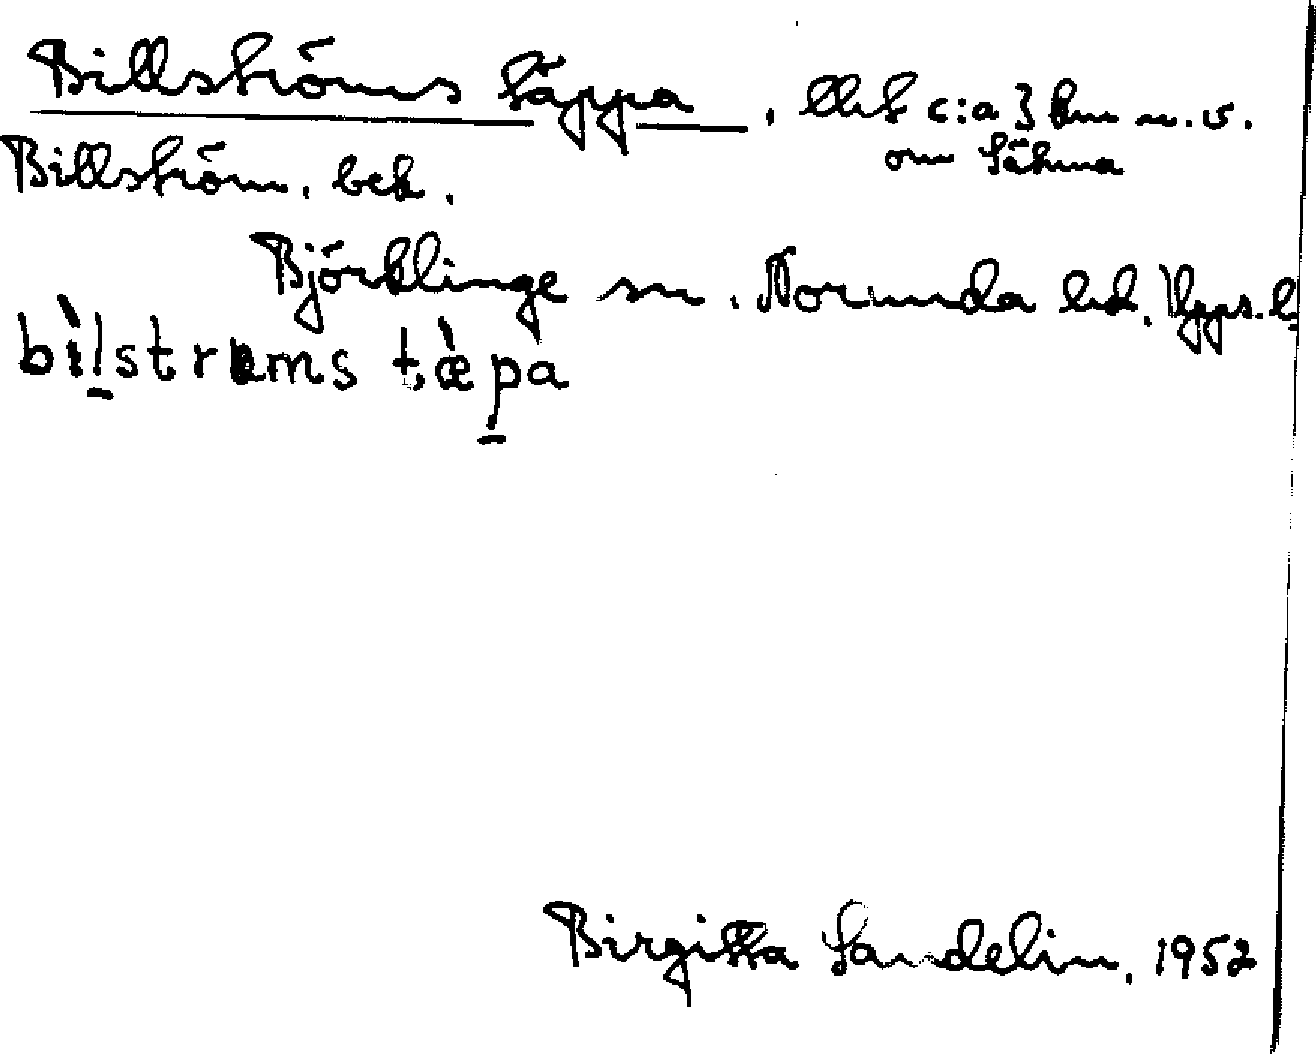 Billströms täppa, lht c:a 3 km n.v.
om Sätuna
Billström, bek.
Björklinge sn. Norunda hd. Upps. l
bìl̠strɵms tæ̀p̠a
Birgitta Sandelin, 1952